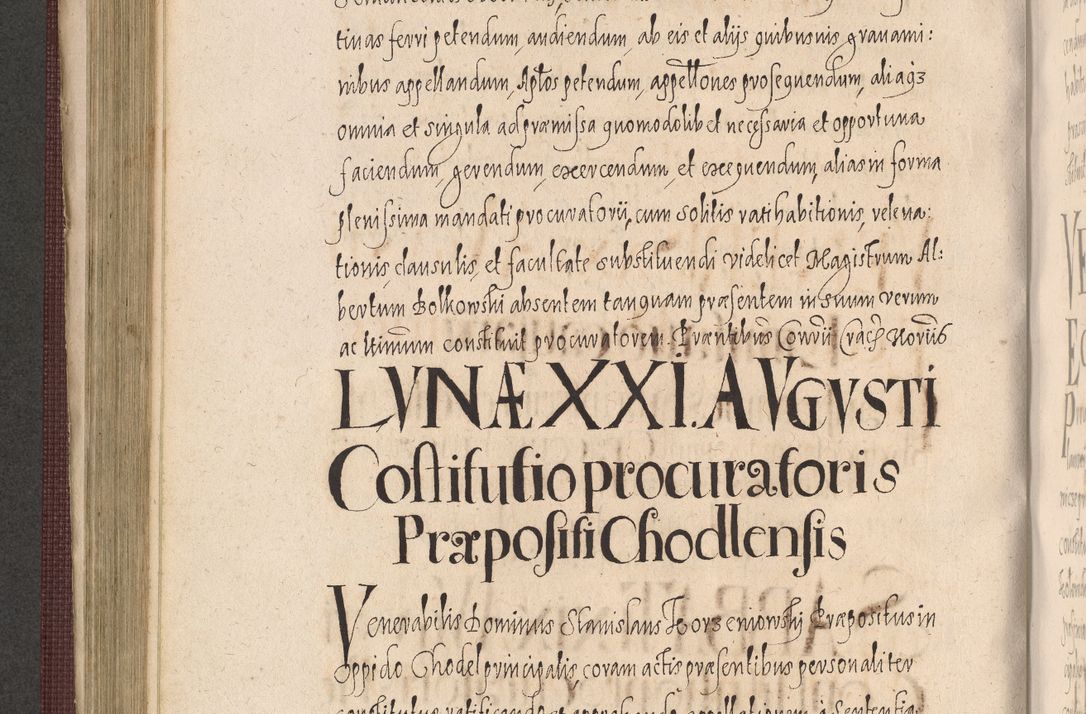 tivas ferri petendum, audiendum ab eis et aliis quibusvis gravami:
nibus appellandum, Aplos petendum, appellones prosequendum, aliaqз
omnia et singula ad præmissa quomodolibet necessaria et opportuna
faciendum, gerendum, exercendum, et exequendum, alias in forma
plenissima mandati procuratorij, cum solitis ratihabitionis, releva:
tionis clausulis, et facultate substituendi videlicet Magistrum Al:
bertum Bolkowski absentem tanquam præsentem in suum verum
ac ltimum constituit procuratorem. Præntibus
LVNÆ XXI. AVGVSTI
Costitutio procuratoris
Præpositi Chodlensis
Venerabilis Dominus Stanislaus Korzeniowskj Præpositus in
oppido Chodel principalis, coram actis præsentibus personaliter
constitutus ratificando et approbando appellationem à Sententia